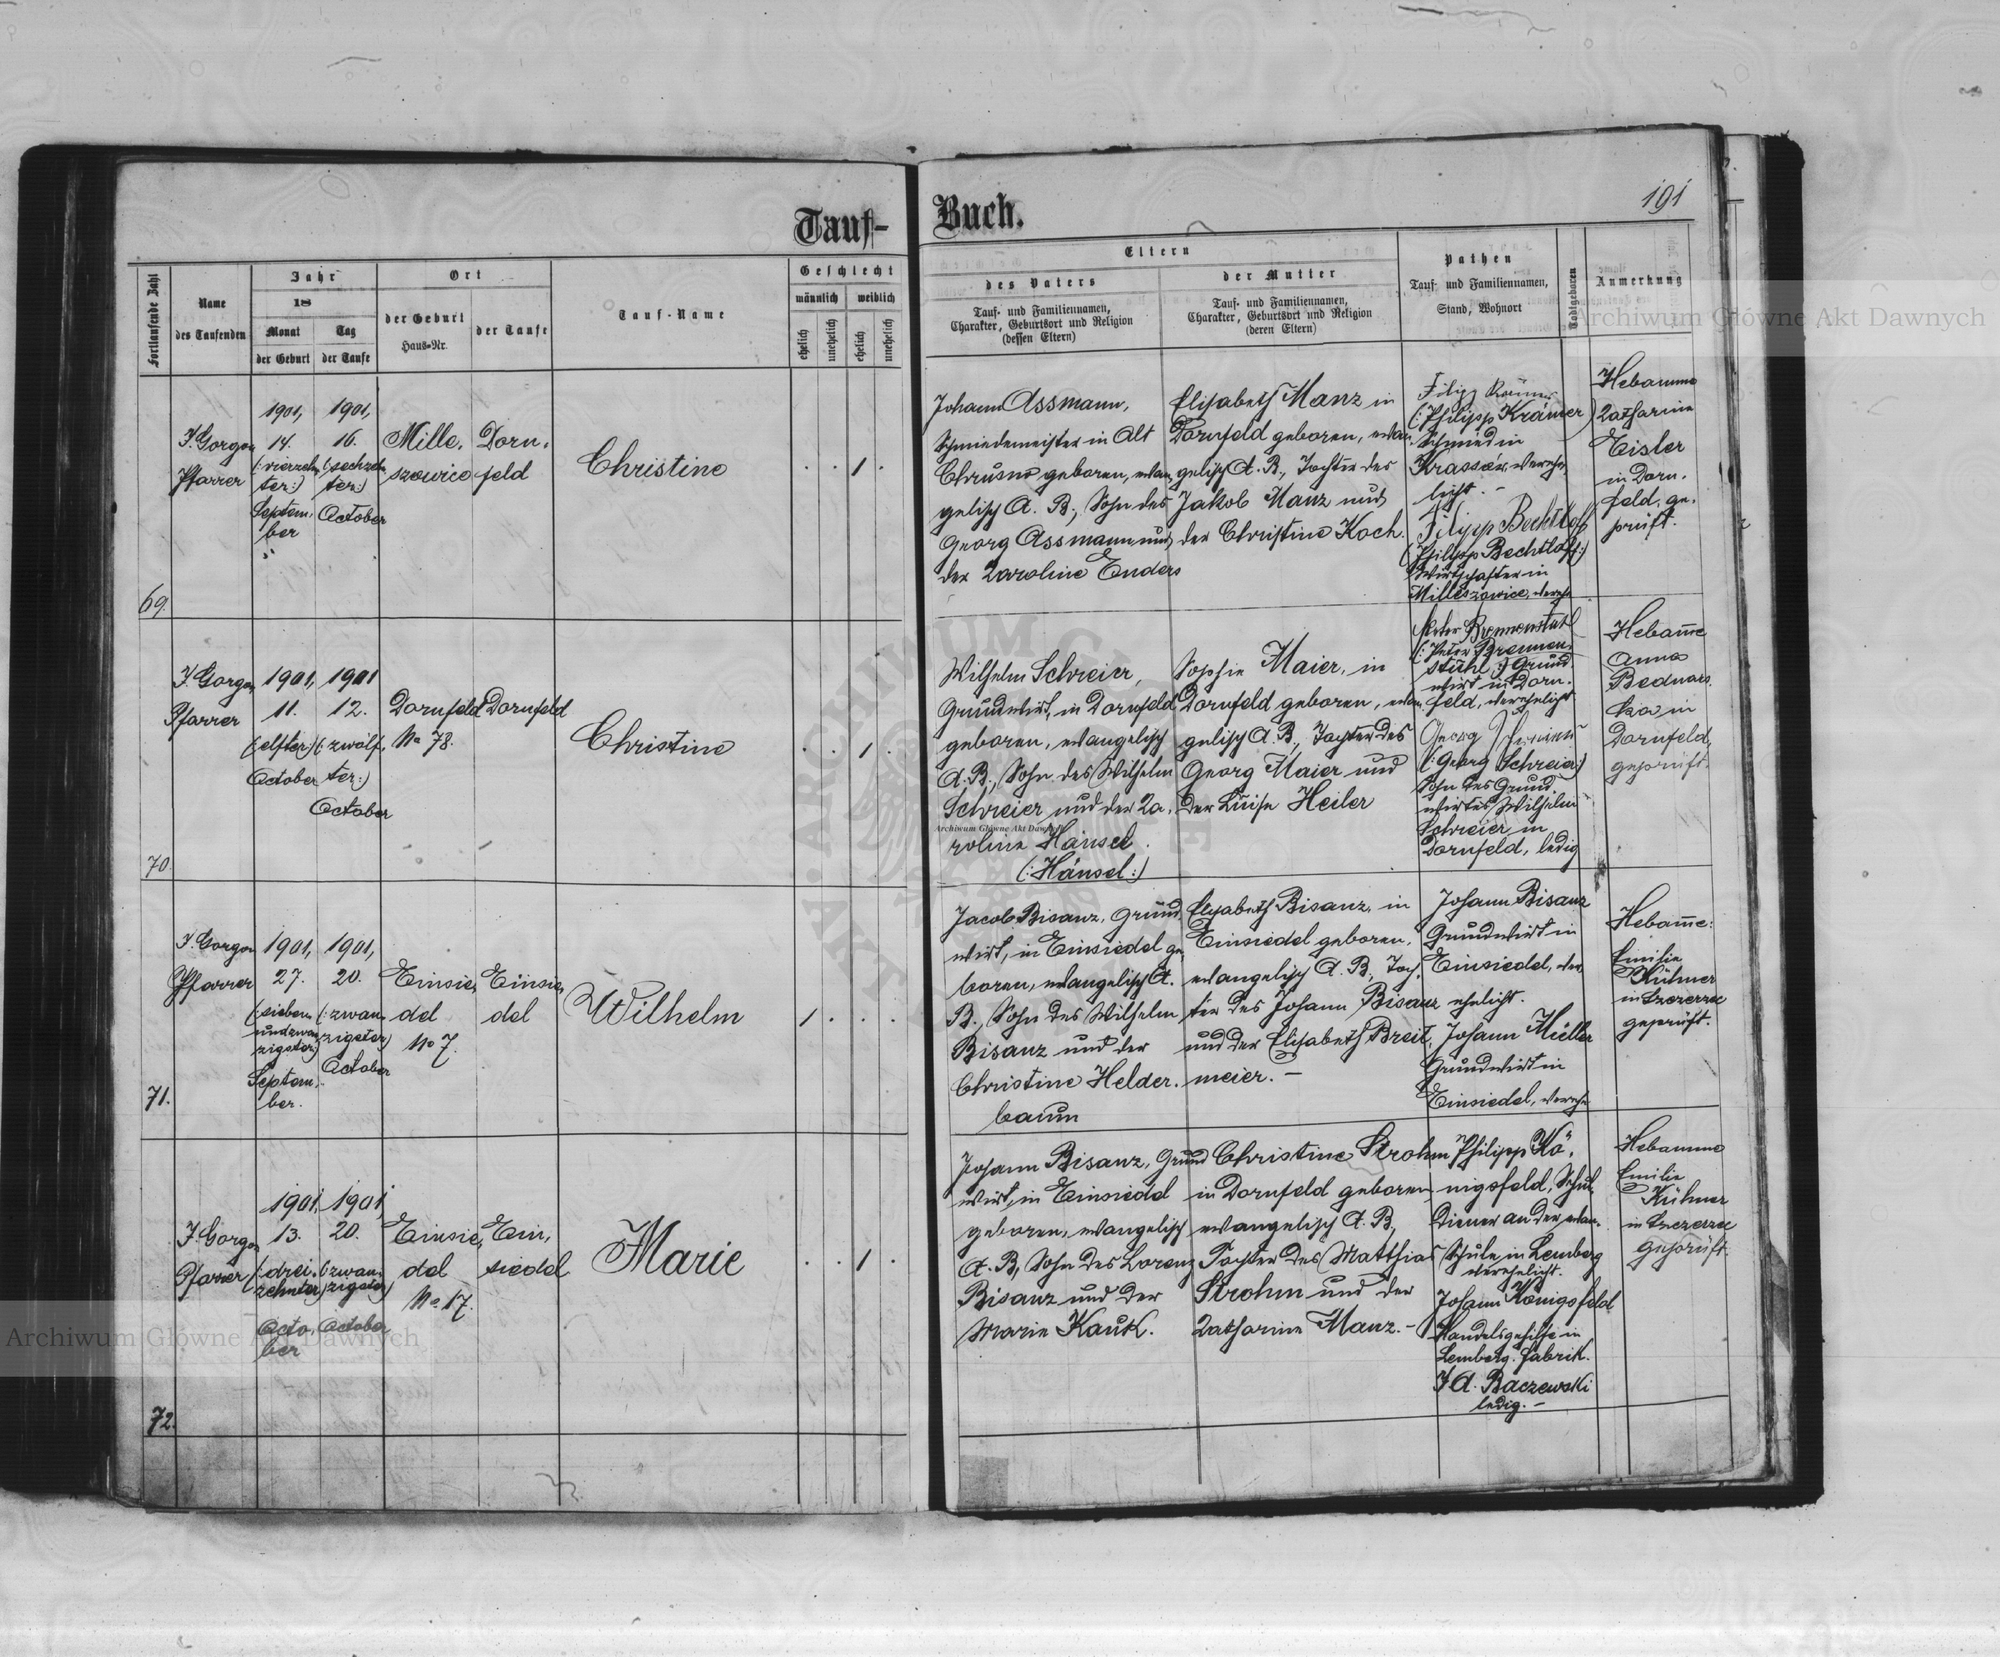 Tauf-
Buch.
191
Fortlaufende Zahl
Name
des Taufenden
Jahr
18
Monat
der Geburt
Tag
der Taufe
Ort
der Geburt
Haus-Nr.
der Taufe
Tauf-Name
Geschlecht
männlich
weiblich
ehelich
unehelich
ehelich
unehelich
Eltern
des Vaters
Tauf- und Familiennamen,
Charakter, Geburtsort und Religion
(dessen Eltern)
der Mutter
Tauf- und Familiennamen,
Charakter, Geburtsort und Religion
(deren Eltern)
Pathen
Tauf- und Familiennamen,
Stand, Wohnort
Todtgeboren
Anmerkung
69.
J. Gorgon
Pfarrer
1901,
14.
(: vierzehn
ter:)
Septem,
ber
1901,
16.
(: sechzehn
ter:)
October
Mille,
szowice
Dorn,
feld
Christine
. . 1 .
Johann Assmann,
Schmiedemeister in Alt
Chrusno geboren, evan,
gelisch A. B., Sohn des
Georg Assmann und
der Karoline Enders
Elisabeth Manz in
Dornfeld geboren, evan,
gelisch A. B., Tochter des
Jakob Manz und
der Christine Koch.
Filipp
(: Philipp Krämer
Schmied in
verehe,
licht. -
Filipp Bechtloff
(: Philipp Bechtloff:)
Wirtschafter in
Milleszowice, vereh
Hebamme
Katharine
Eisler
in Dorn,
feld, ge,
prüft.
70.
J. Gorgon
Pfarrer
1901,
11.
(: elfter:)
October
1901
12.
(: zwölf,
ter:)
October
Dornfeld
No 78.
Dornfeld
Christine
. . 1 .
Wilhelm Schreier,
Grundwirt, in Dornfeld
geboren, evangelisch
A. B., Sohn des Wilhelm
Schreier und der Ka,
roline Hänsel
(: Hänsel:)
Sophie Maier, in
Dornfeld geboren, evan,
gelisch A. B., Tochter des
Georg Maier und
der Luise Heiler
Peter Brennenstuhl
(: Peter Brennen,
stuhl:) Grund,
wirt in Dorn,
feld, verehelicht
Georg
(: Georg Schreier:)
Sohn des Grund,
wirtes Wilhelm
Schreier in
Dornfeld, ledig
Hebamme
Anna
Bednars,
ka in
Dornfeld,
geprüft.
71.
J. Gorgon
Pfarrer
1901,
27.
(: sieben
undzwan
zigster:)
Septem,
ber.
1901,
20.
(: zwan,
zigster:)
October
Einsie,
del
No 7.
Einsie,
del
Wilhelm
1 . . .
Jacob Bisanz, Grund,
wirt, in Einsiedel ge,
boren, evangelisch A.
B., Sohn des Wilhelm
Bisanz und der
Christine Helder,
baum
Elisabeth Bisanz, in
Einsiedel geboren,
evangelisch A. B., Toch,
ter des Johann Bisanz
und der Elisabeth Breit,
meier. -
Johann Bisanz
Grundwirt in
Einsiedel, ver,
ehelicht.
Johann Müller
Grundwirt in
Einsiedel, vereh
Hebamme:
Emilie
Kühner
in Szczerzec
geprüft.
72.
J. Gorgon
Pfarrer
1901,
13.
(: drei,
zehnter:)
Octo,
ber
1901,
20.
(: zwan,
zigster:)
October
Einsie,
del
No 17.
Ein,
siedel
Marie
. . 1 .
Johann Bisanz, Grund
wirt, in Einsiedel
geboren, evangelisch
A. B., Sohn des Lorenz
Bisanz und der
Marie Kauk.
Christine Strohm
in Dornfeld geboren
evangelisch A. B.,
Tochter des Matthias
Strohm und der
Katharine Manz. -
Philipp Kö,
nigsfeld, Schul,
diener an der evan.
Schule in Lemberg
verehelicht.
Johann Königsfeld
Handelsgehilfe in
Lemberg. Fabrik.
J. A. Baczewski
ledig. -
Hebamme
Emilie
Kühner
in Szczerzec
Geprüft.
Archiwum Główne Akt Dawnych
Archiwum Główne Akt Dawnych
Archiwum Główne Akt Dawnych